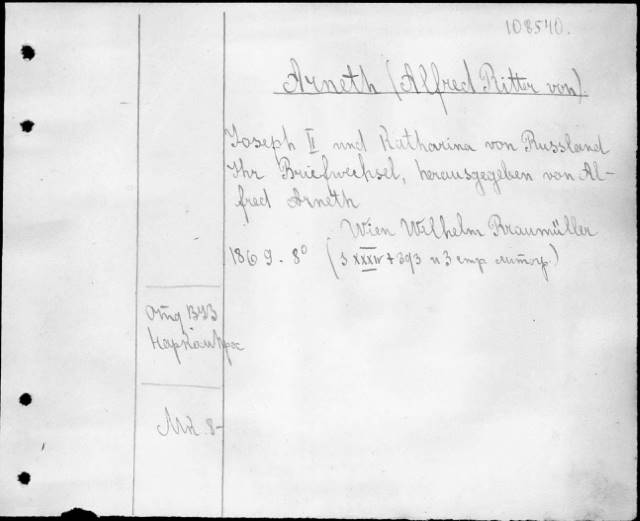 108540.
Arneth (Alfred Ritter von).
Joseph II und Katharina von Russland
Ihr Briefwechsel, herausgegeben von Al-
fred Arneth
Wien Wilhelm Braumüller
1869. 8° (S XXXIV + 393 и 3 стр литогр.)
Отд
8-